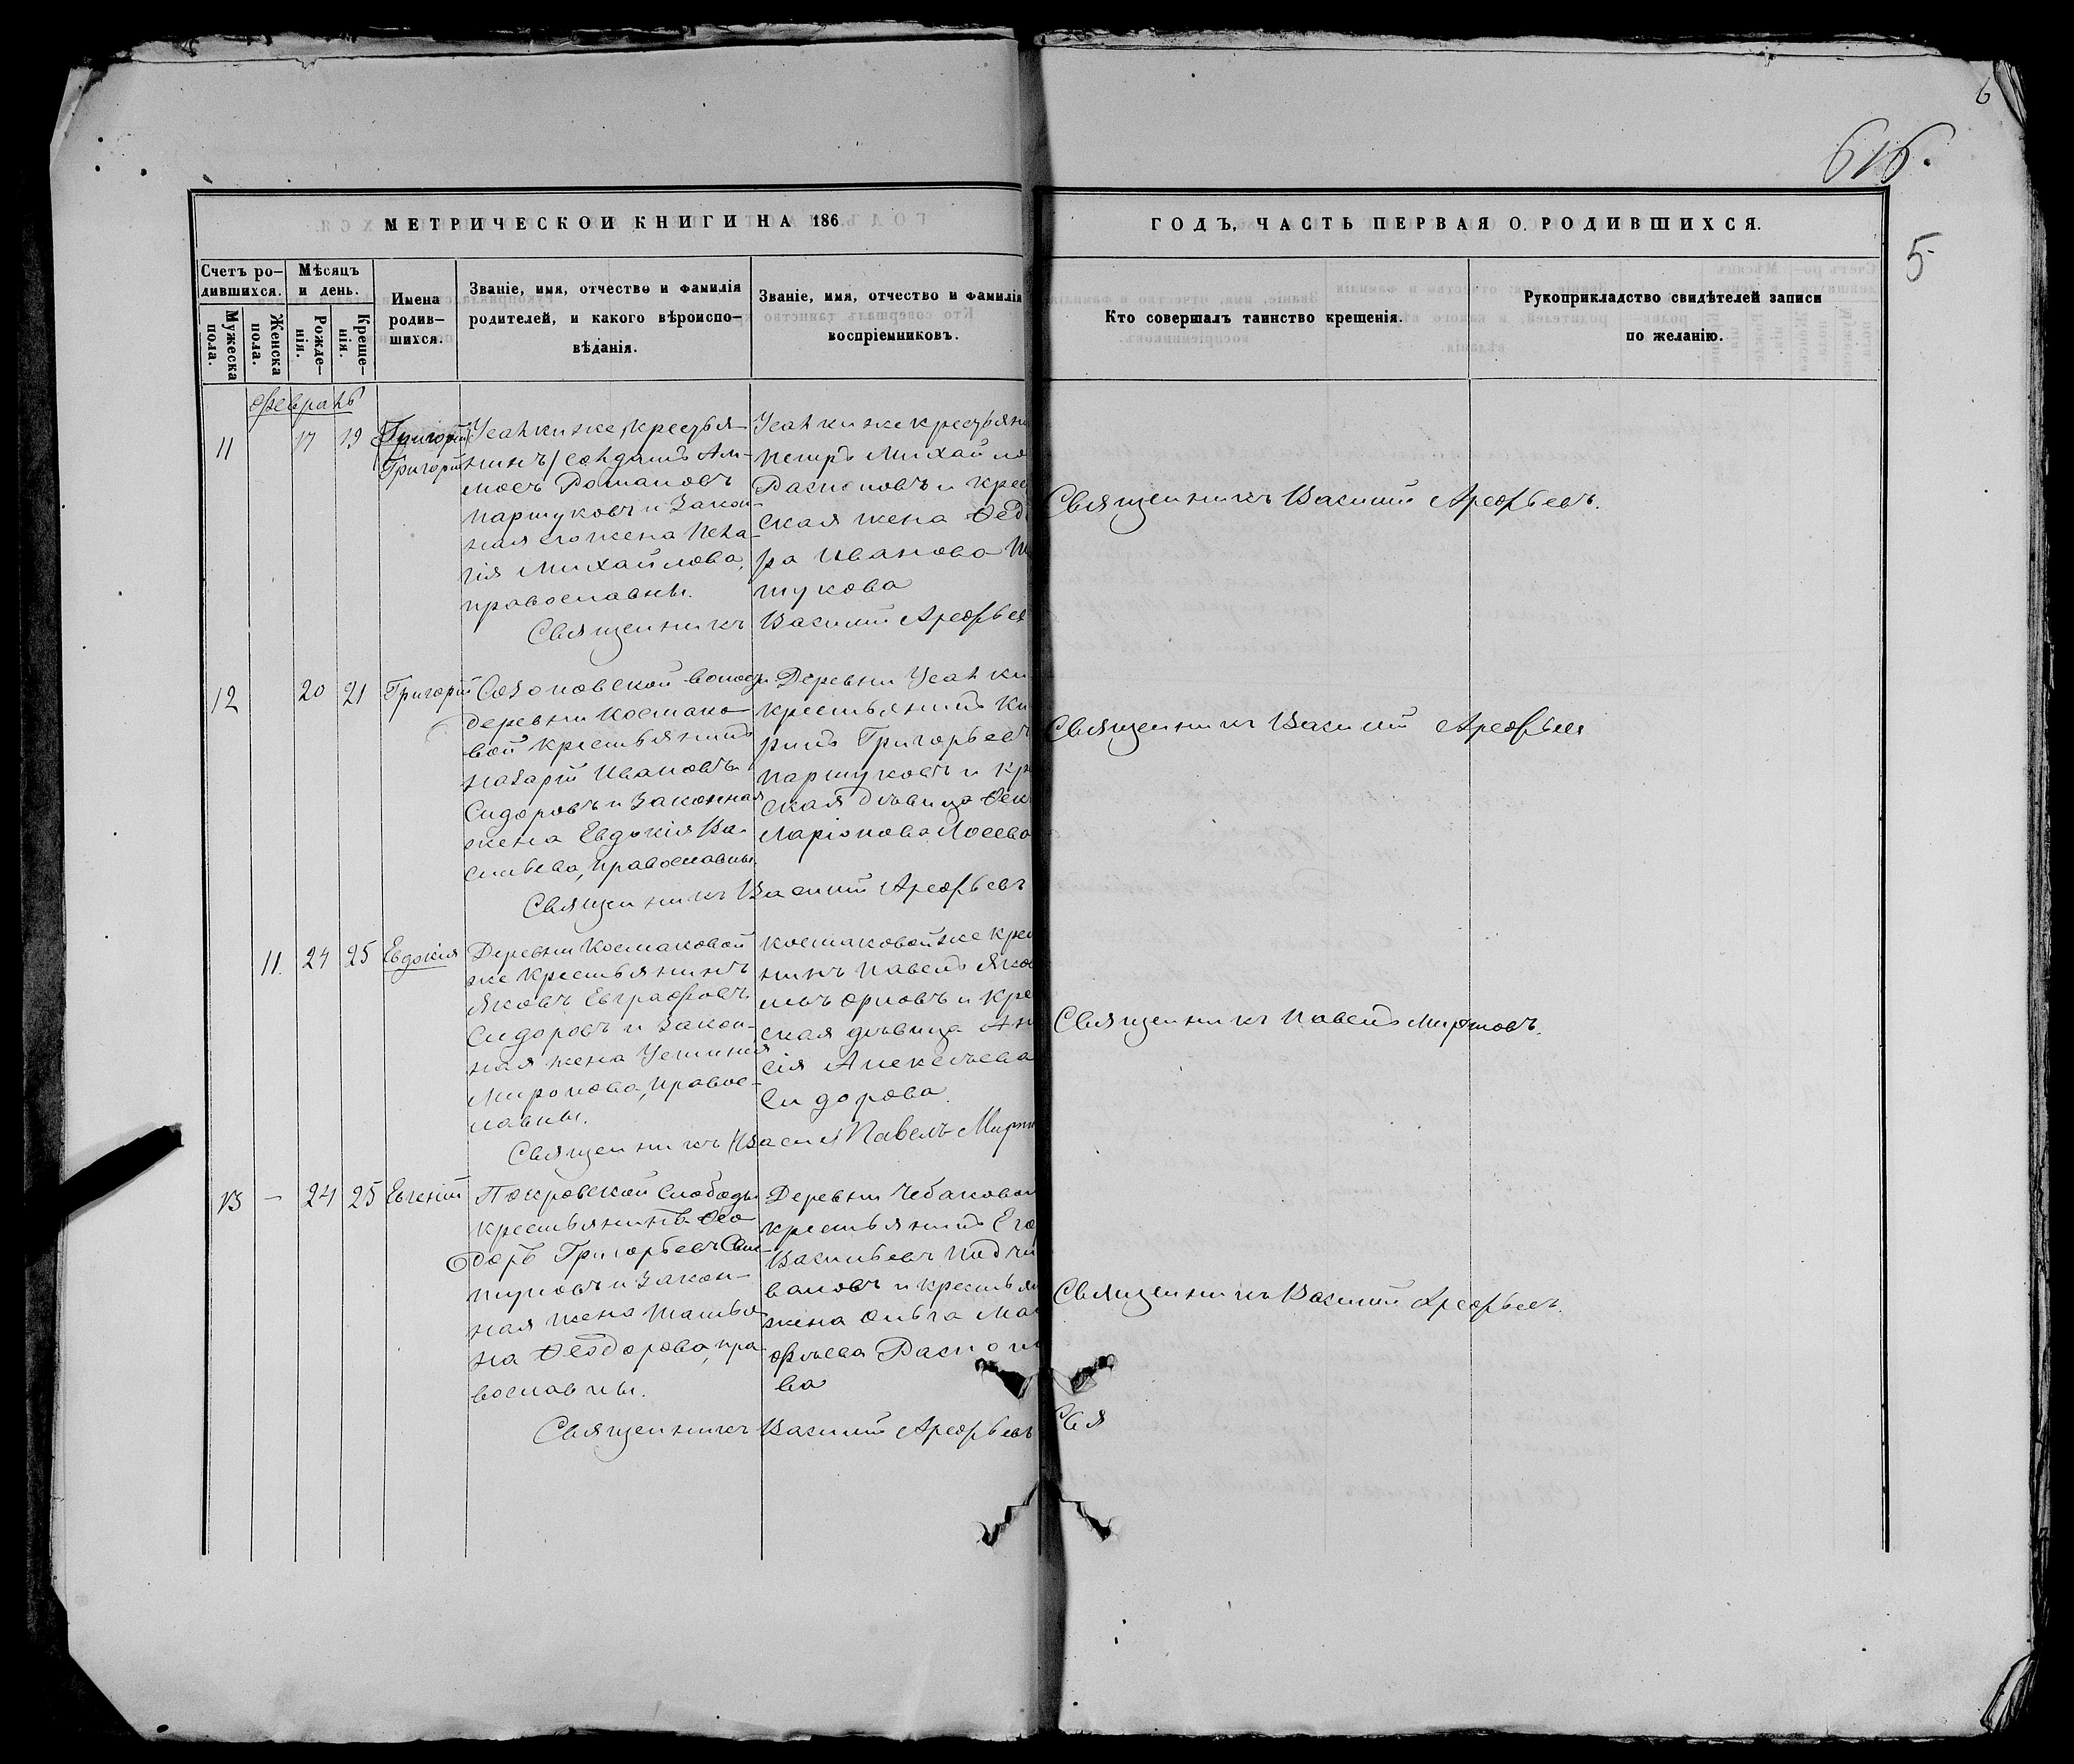 6
616.
5
МЕТРИЧЕСКОИ КНИГИ НА 186
ГОДЪ, ЧАСТЬ ПЕРВАЯ О РОДИВШИХСЯ.
Счетъ ро-
дившихся.
Мужеска
пола.
Женска
пола.
Мѣсяцъ
и день.
Рожде-
нія.
Креще-
нія.
Имена
родив-
шихся.
Званіе, имя, отчество и фамилія
родителей, и какого вѣроиспо-
вѣданія.
Званіе, имя, отчество и фамилія
воспріемниковъ.
Кто совершалъ таинство крещенія.
Рукоприкладство свидѣтелей записи
по желанію.
Февраль
11 17 19 Григорій
Григорій
Усалки же, крестья-
нинъ/солдатъ Ам-
мосъ Романовъ
Паршуковъ и закон-
ная его жена Пела-
гія Михайлова,
православны.
Усалки же крестьян
Петръ Михайло
Распоповъ и крес
ская жена Ѳедо
ра Иванова П
шукова
Священникъ Василій Арефьев
Священникъ Василій Арефьевъ.
12 20 21 Григорій
Созоновской волости
деревни Космако-
вой крестьянинъ
Назарій Ивановъ
Сидоровъ и законная
жена Евдокія Ва-
сильева, православны.
Деревни Усалки
крестьянинъ Ки
рилъ Григорьевъ
Паршуковъ и кр
ская дѣвица Ѳек
Ларіонова Лосева
Священникъ Василій Арефьевъ
Священникъ Василій Арефьевъ
11. 24 25 Евдокія
Деревни Космаковой
же крестьянинъ
Яковъ Евграфовъ
Сидоровъ и закон-
ная жена Устинія
Миронова, правос-
лавны.
Космаковой же крес
нинъ Павелъ Яков
Орловъ и кре
ская дѣвица Ан
сія Алексѣева
Сидорова.
Священникъ Павелъ
Священникъ Павелъ
13 - 24 25 Евгеній
Покровской Слободы
крестьянинъ Ѳео
доръ Григорьевъ
и закон-
ная жена Татья
на Ѳеодорова, пра
вославны.
Деревни Чебаковой
крестьянинъ Его
Васильевъ Подчи
валовъ и крестьян
жена Ольга Мат
фѣева Распопо
ва
Священникъ Василій Арефьевъ
Священникъ Василій Арефьевъ.
Свя